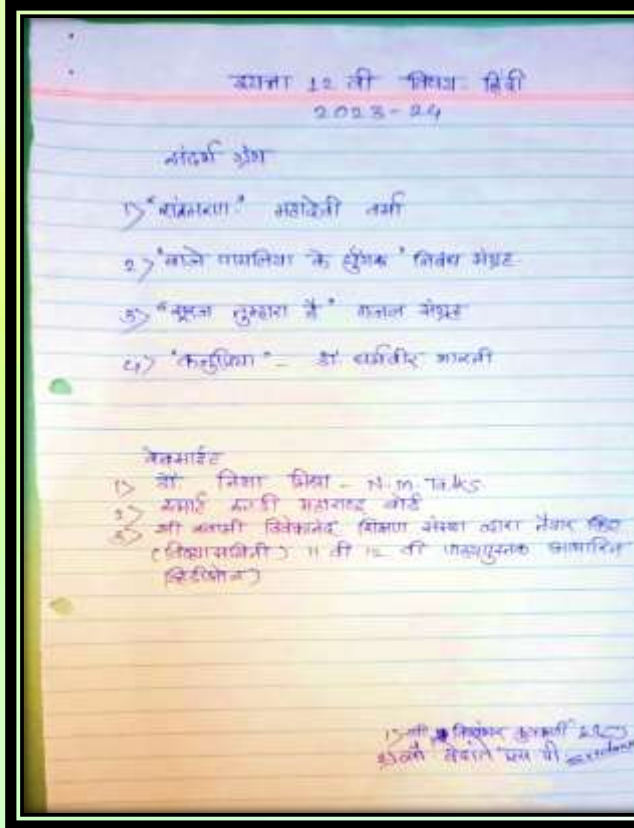 इयत्ता 12 वी विषय: हिंदी
2023-24
संदर्भ ग्रंथ
1) "संस्मरण" महादेवी वर्मा
2) "बाजे पायलिया के घुँघरू" निबंध संग्रह
3) "सूरज तुम्हारा है" गजल संग्रह
4) "कनुप्रिया" - डॉ धर्मवीर भारती
वेबसाईट
1) डॉ. निशा मिश्रा - N.M. Talks
2) स्मार्ट स्टडी महाराष्ट्र बोर्ड
3) श्री स्वामी विवेकानंद शिक्षण संस्था द्वारा तैयार किए
11 वी 12 वी पाठ्यपुस्तक आधारित
1) श्री कुलकर्णी
2) एस पी